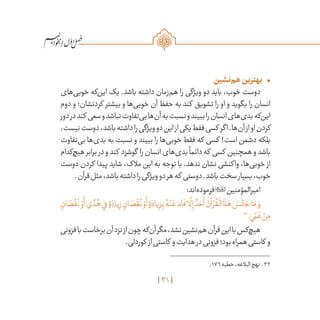 فصل اول
بهترین هم‌نشین
دوست خوب، باید دو ویژگی را هم‌زمان داشته باشد. یک این‌که خوبی‌های
انسان را بگوید و او را تشویق کند به حفظ آن خوبی‌ها و بیشتر کردنشان؛ و دوم
این‌که بدی‌های انسان را ببیند و نسبت به آن‌ها بی‌تفاوت نباشد و سعی کند در دور
کردن او از آن‌ها. اگر کسی فقط یکی از این دو ویژگی را داشته باشد، دوست نیست،
بلکه دشمن است! کسی که فقط خوبی‌ها را ببیند و نسبت به بدی‌ها بی‌تفاوت
باشد و همچنین کسی که دائماً بدی‌های انسان را گوشزد کند و در برابر هیچ‌کدام
از خوبی‌ها، واکنشی نشان ندهد. با توجه به این ملاک، شاید پیدا کردن دوست
خوب، بسیار سخت باشد. دوستی که هر دو ویژگی را داشته باشد، مثل قرآن.
امیرالمؤمنین فرموده‌اند:
وَ مَا جَالَسَ هَذَا الْقُرْآنَ أَحَدٌ إِلَّا قَامَ عَنْهُ بِزِيَادَةٍ أَوْ نُقْصَانٍ زِيَادَةٍ فِي هُدًى أَوْ نُقْصَانٍ
مِنْ عَمًى؛
هیچ‌کس با این قرآن هم‌نشین نشد، مگر آن‌که چون از نزد آن برخاست با فزونی
و کاستی همراه بود؛ فزونی در هدایت و کاستی از کوردلی.
۳۲. نهج البلاغه، خطبه ۱۷۶.
| ۳۱ |